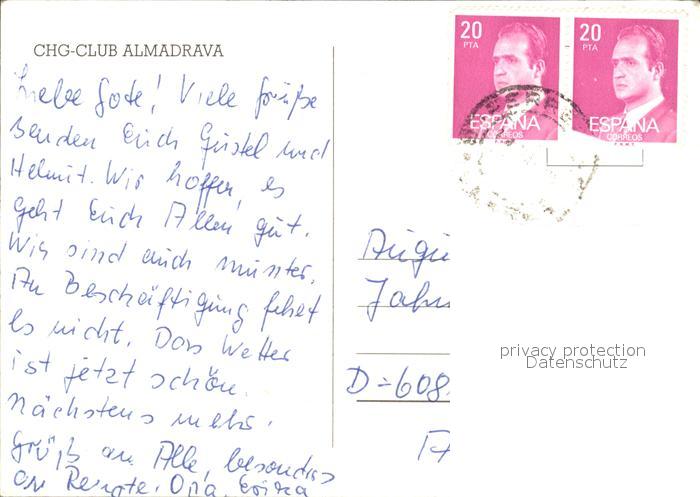 CHG-CLUB ALMADRAVA
Liebe Gote! Viele Grüße
senden Euch Gustel und
Helmut. Wir hoffen, es
geht Euch Allen gut.
Wir sind auch munter.
An Beschäftigung fehlt
es nicht. Das Wetter
ist jetzt schön.
Nächstens mehr.
Grüß an Alle, besonders
an Renate, Opa, Erika
20
PTA
ESPAÑA
CORREOS
F.N.M.T.
20
PTA
ESPAÑA
CORREOS
F.N.M.T.
Augu
Jahn
D=608
privacy protection
Datenschutz